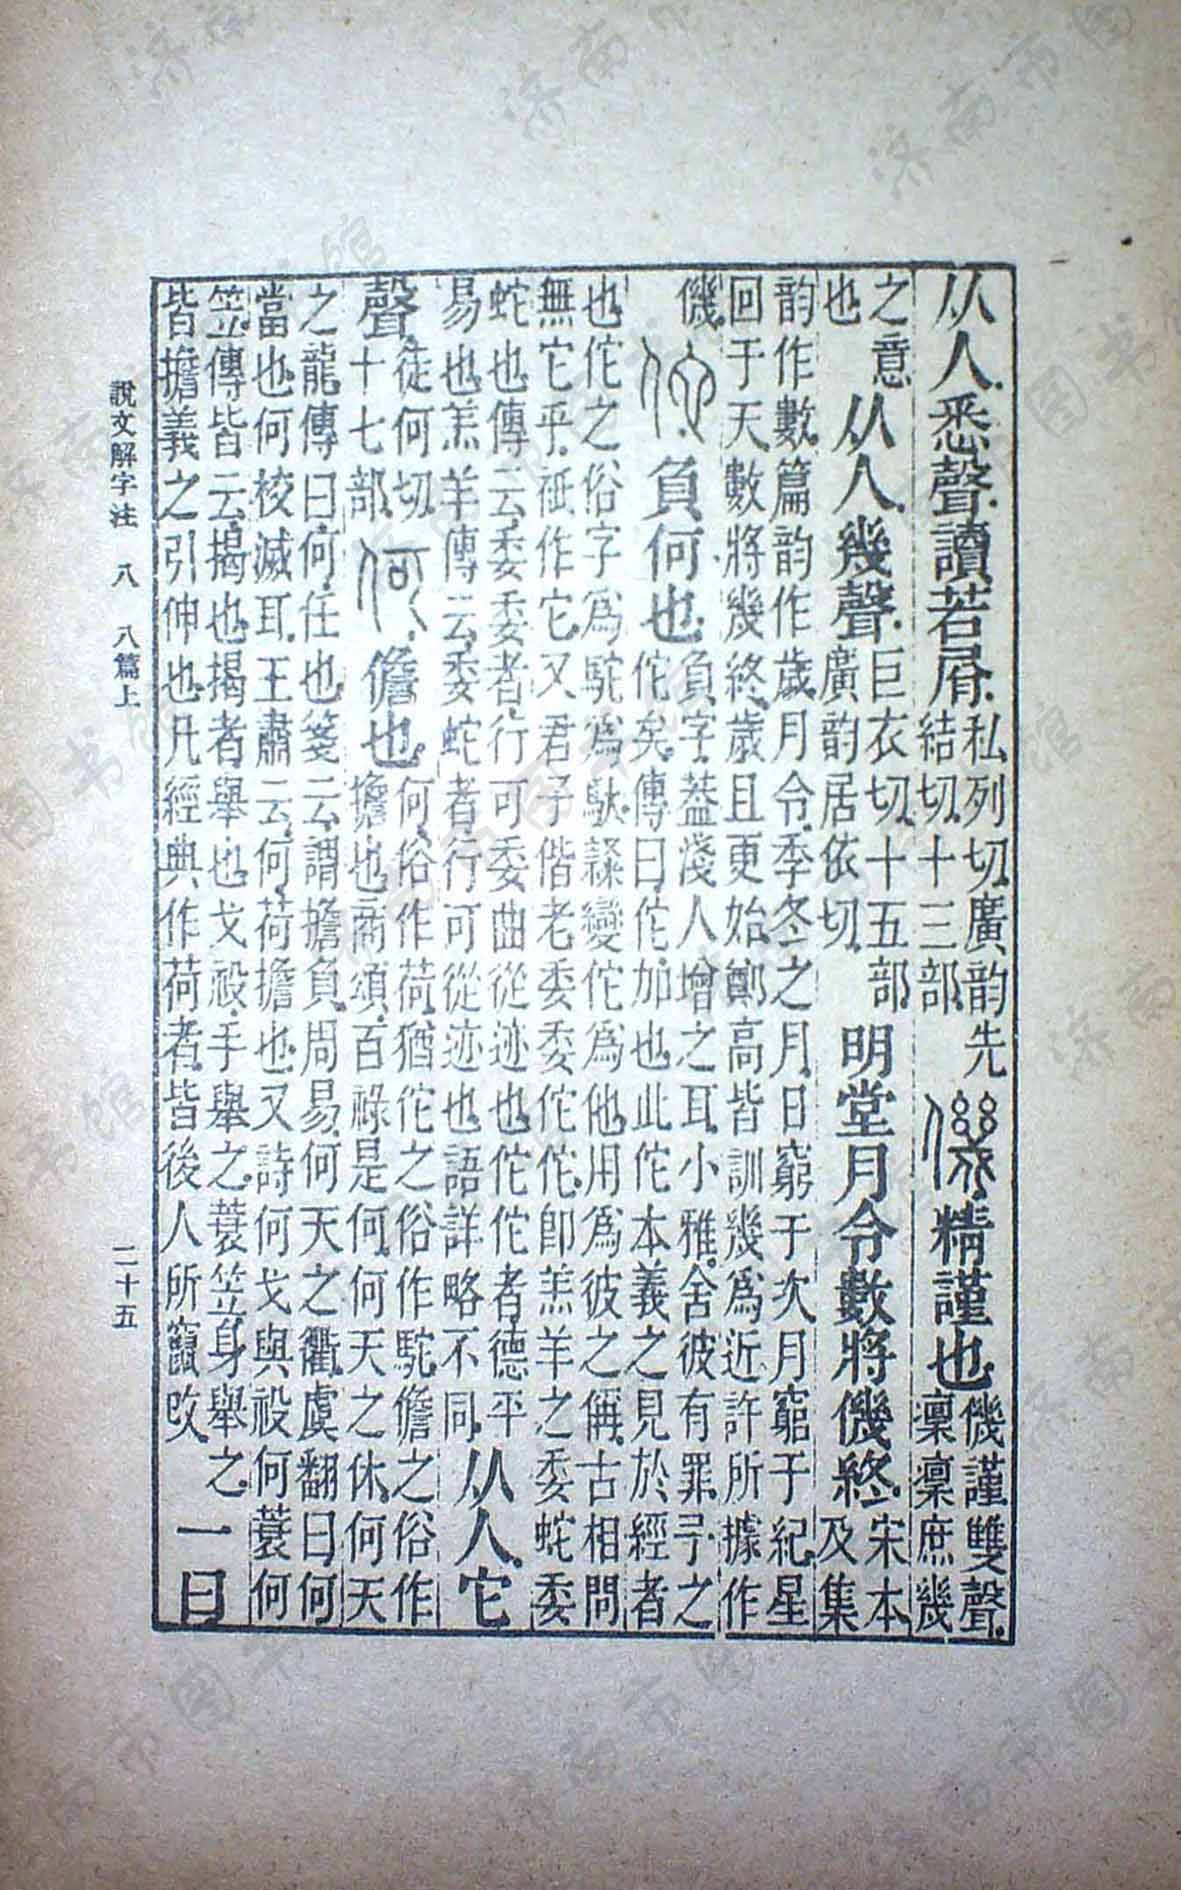 从人悉聲讀若屑私列切廣韵先結切十三部僟精謹也僟謹雙聲凜凜庶幾
之意也从人幾聲巨衣切十五部廣韵居依切明堂月令數將僟終宋本及集
韵作數篇韵作歲月令季冬之月日窮于次月窮于紀星
回于天數將幾終歲且更始鄭高皆訓幾爲近許所據作
僟佗負何也負字葢淺人增之耳小雅舍彼有罪予之佗矣傳曰佗加也此佗本義之見於經者
也佗之俗字爲駝爲馱隸變佗爲他用爲彼之偁古相問
無它乎祇作它又君子偕老委委佗佗卽羔羊之委蛇委
蛇也傳云委委者行可委曲從迹也佗佗者德平易也羔羊傳云委蛇者行可從迹也語詳略不同从人它
聲徒何切十七部何儋也何俗作荷猶佗之俗作駝儋之俗作擔也商頌百祿是何何天之休何天
之龍傳曰何任也箋云謂擔負周易何天之衢虞翻曰何
當也何校滅耳王肅云何荷擔也又詩何戈與祋何蓑何
笠傳皆云揭也揭者舉也戈祋手舉之蓑笠身舉之皆擔義之引伸也凡經典作荷者皆後人所竄改一曰
說文解字注 八 八篇上 二十五